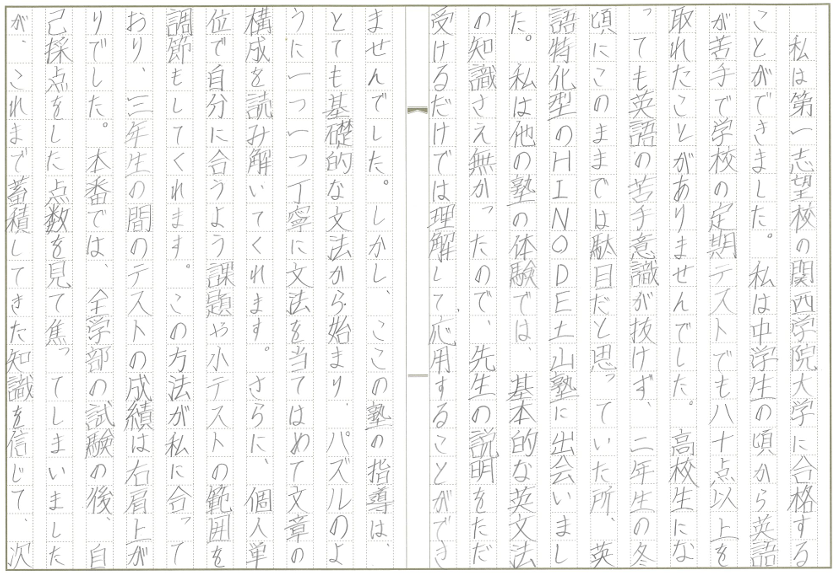 私は第一志望校の関西学院大学に合格する
ことができました。私は中学生の頃から英語
が苦手で学校の定期テストでも八十点以上を
取れたことがありませんでした。高校生にな
っても英語の苦手意識が抜けず、二年生の冬
頃にこのままでは駄目だと思っていた所、英
語特化型のHINODE土山塾に出会いまし
た。私は他の塾の体験では、基本的な英文法
の知識さえ無かったので、先生の説明をただ
受けるだけでは理解して、応用することができ
ませんでした。しかし、ここの塾の指導は、
とても基礎的な文法から始まり、パズルのよ
うに一つ一つ丁寧に文法を当てはめて文章の
構成を読み解いてくれます。さらに、個人単
位で自分に合うよう課題や小テストの範囲を
調節もしてくれます。この方法が私に合って
おり、三年生の間のテストの成績は右肩上が
りでした。本番では、全学部の試験の後、自
己採点をした点数を見て焦ってしまいました
が、これまで蓄積してきた知識を信じて、次